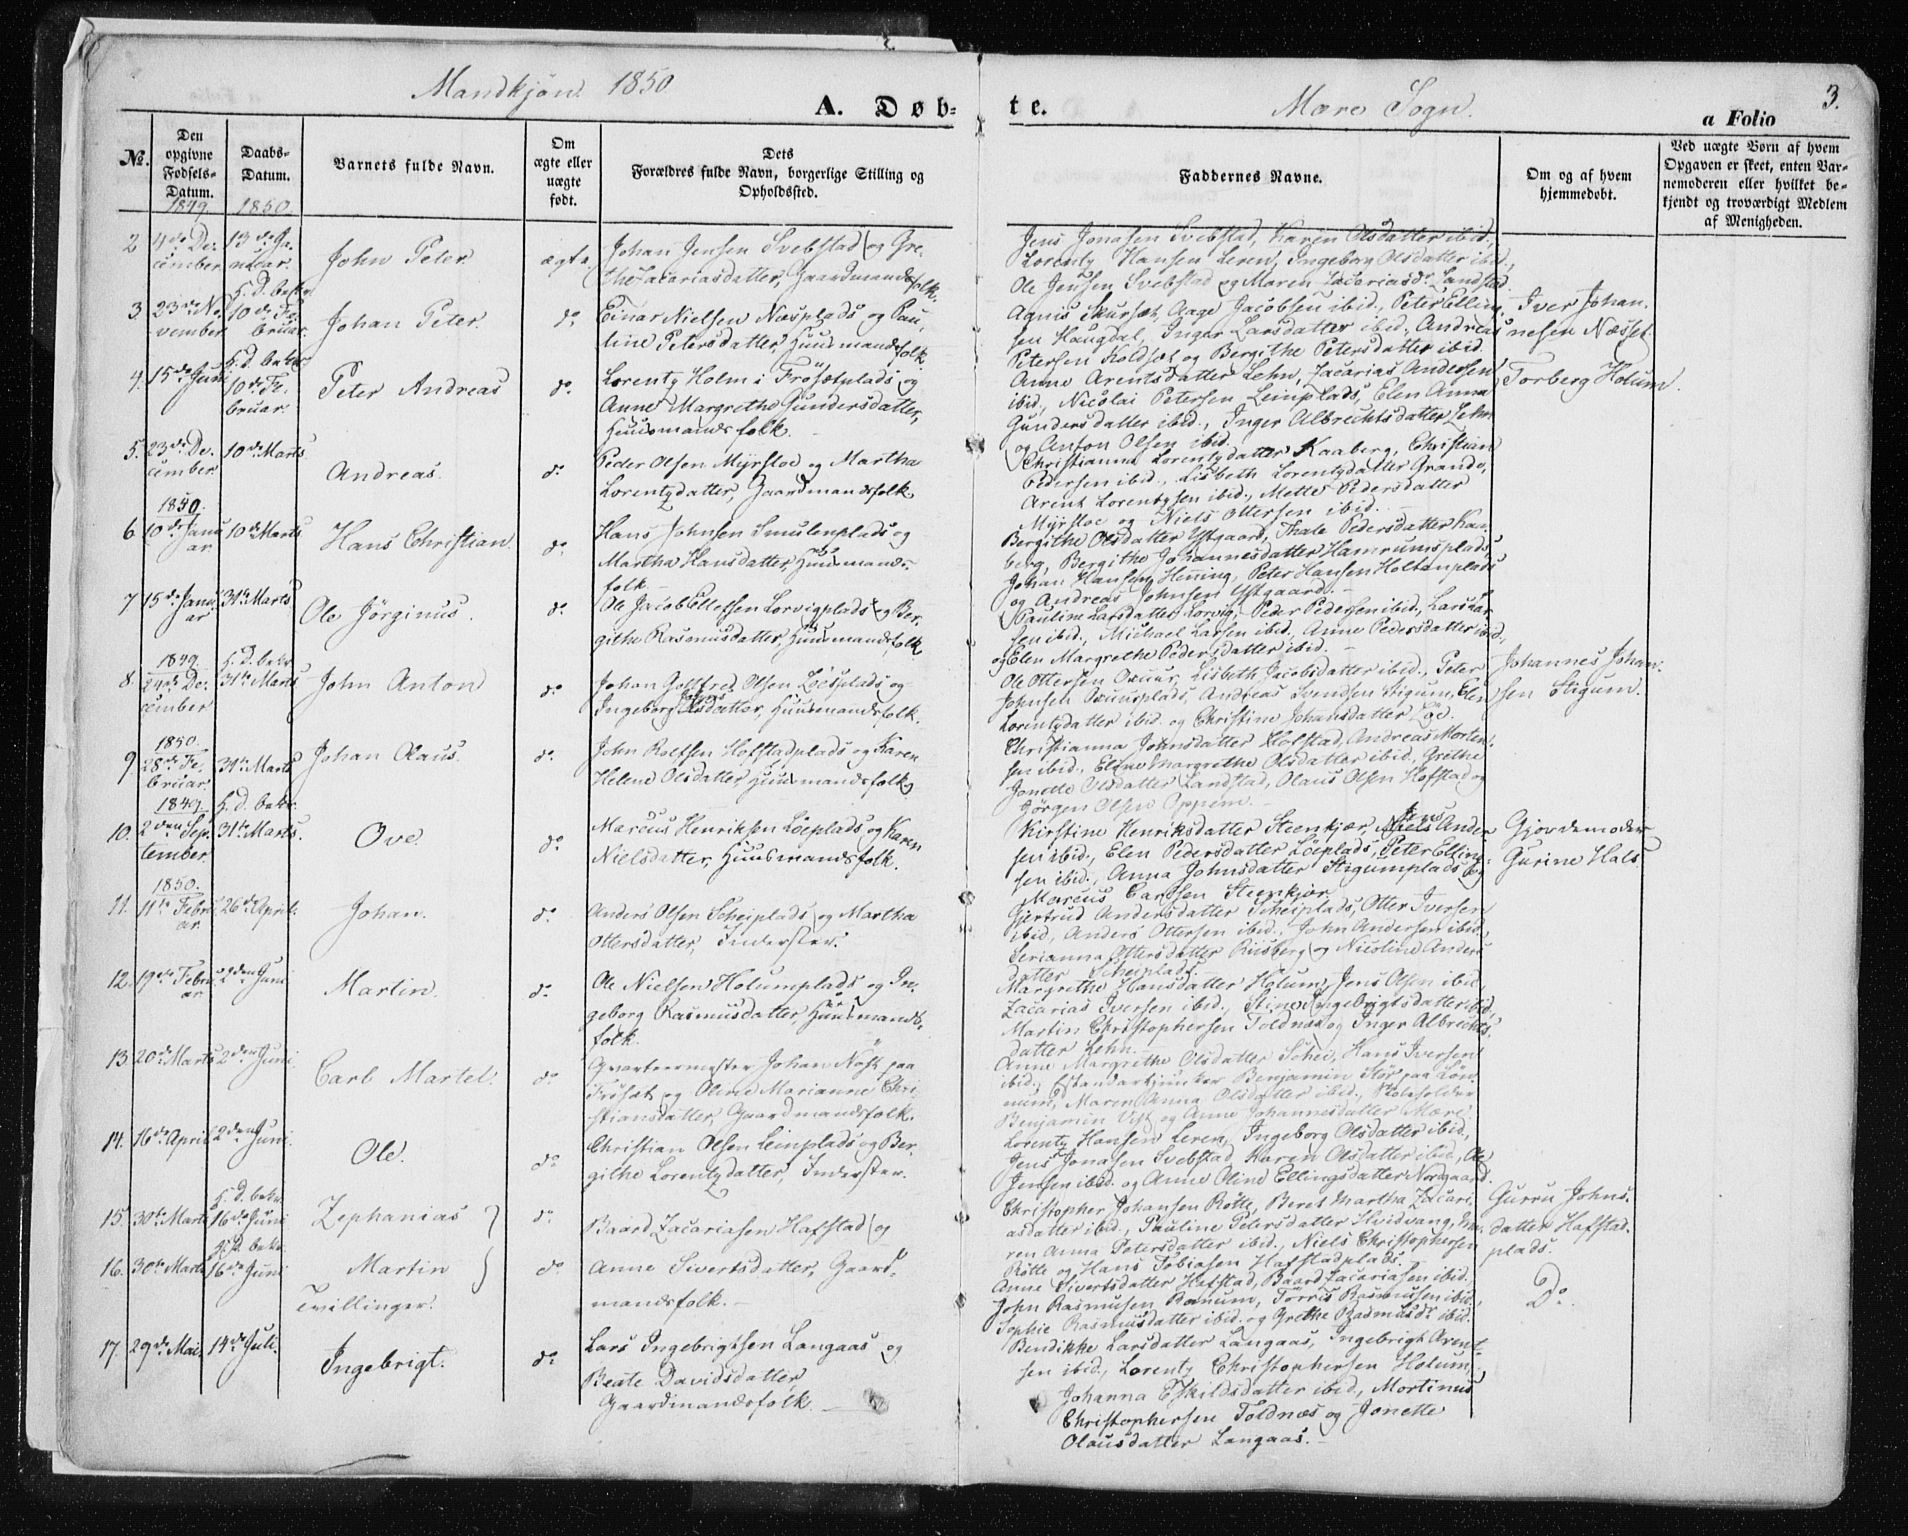 Mandkjøn 1850
A. Døb-
te.
Mære Sogn.
3.
a Folio
№.
Den opgivne Fødsels-Datum.
Daabs-Datum.
Barnets fulde Navn.
Om ægte eller uægte født.
Dets
Forældres fulde Navn, borgerlige Stilling og Opholdssted.
Faddernes Navne.
Om og af hvem hjemmedøbt.
Ved uægte Børn af hvem
Opgaven er skeet, enten Bar-
nemoderen eller hvilket be-
kjendt og troværdigt Medlem
af Menigheden.
1849 1850
2 4de De- 13de Ja- John Peter. ægte Johan Jensen Svebstad og Gre-
cember nuar. the Zacariasdatter, Gaardmandsfolk.
Jens Jonasen Svebstad, Karen Olsdatter ibid.,
Lorentz Hansen Leren, Ingeborg Olsdatter ibid.,
Ole Jensen Svebstad og Maren Zacariasdr Landstad
H. D. bekr.
3. 23de No- 10de Fe- Johan Peter. do. Einar Nielsen Næsplads og Pau-
vember bruar. line Petersdatter, Huusmandsfolk
Agnis Skursæt, Aage Jacobsen ibid., Peter Elling-
sen Haugdal, Inger Larsdatter ibid., Andreas
Petersen Koldsæt og Bergithe Petersdatter ibid.
Iver Johan-
nesen Næsset.
H. D. bekr.
4. 15de Juni 10de Fe- Peter Andreas do. Lorentz Holm i Frøsætplads og
bruar. Anne Margrethe Gundersdatter,
Huusmandsfolk.
Anne Arentsdatter Lehn, Zacarias Andersen
ibid, Nicolai Petersen Leinplads, Elen Anna
Gundersdatter ibid., Inger Albrechtsdatter Lehn
og Anton Olsen ibid.
Torberg Holum.
5. 23de De- 10de Marts Andreas. do. Peder Olsen Myrstoe og Martha
cember Lorentzdatter, Gaardmandsfolk
Christianna Lorentzdatter Kaaberg, Christian
Pedersen ibid., Lisbeth Lorentzdatter Grande,
Arent Lorentzsen ibid., Mette Pedersdatter
Myrstoe og Niels Ottersen ibid.
1850.
6. 10de Janu- 10de Marts Hans Christian. do. Hans Johnsen Smulenplads og
ar Martha Hansdatter, Huusmands-
folk.
Bergithe Olsdatter Ystgaard, Thale Pedersdatter Kaa-
berg, Bergithe Johannesdatter Hamrumsplads,
Johan Hansen Henning, Peter Hansen Holtanplads
og Andreas Johnsen Ystgaard.
7 15de Janu- 31te Marts Ole Jörginus. do. Ole Jacob Ellefsen Lorvigplads og Ber-
ar githe Rasmusdatter, Huusmandsfolk
Pauline Larsdatter Lorvig, Peder Pedersen ibid., Lars
sen ibid., Michael Larsen ibid., Anne Pedersdatter ibid.
og Elen Margrethe Pedersdatter ibid.
1849. H. D. bekr.
8. 29de De- 31te Marts John Anton do. Johan Gottfred Olsen Löeplads og
cember Ingeborg Johns Olsdatter, Huusmandsfolk.
Ole Ottersen Oxuur, Lisbeth Jacobsdatter ibid., Peter
Johnsen Oxuurplads, Andreas Svendsen Stigum, Elen
Lorentzdatter ibid. og Christine Johansdatter Löe.
Johannes Johan-
sen Stigum.
1850.
9 28de Fe- 31te Marts Johan Olaus. do. John Rolfsen Hofstadplads og Karen
bruar. Helene Olsdatter, Huusmandsfolk
Christianna Johnsdatter Hofstad, Andreas Morten-
sen ibid., Elene Margrethe Olsdatter ibid., Grethe
Jonette Olsdatter Landstad, Olaus Olsen Hofstad og
Jörgen Olsen Oppem.
1849. H. D. bekr.
10. 2den Sep- 31te Marts. Ove. do. Marcus Henriksen Löeplads og Karen
tember Nielsdatter, Huusmandsfolk.
Kirstine Henriksdatter Steenkjær, Jens Niels Ander-
sen ibid., Elen Pedersdatter Löeplads, Peter Elling-
sen ibid., Anna Johnsdatter Stigumplads og
Marcus Carlsen Steenkjær
Gjordemoder
Gurine Hals
1850.
11. 11te Febru- 26de April. Johan. do. Anders Olsen Scheiplads og Martha
ar. Ottersdatter, Inderster.
Gjertrud Andersdatter Scheiplads, Otter Iversen
ibid., Anders Ottersen ibid., John Andersen ibid.,
Serianna Ottersdatter Riisberg og Nicoline Anders-
datter Scheiplads.
12. 19de Febru- 2den Juni Martin. do. Ole Nielsen Holumplads og In-
ar geborg Rasmusdatter, Huusmands-
folk.
Margrethe Hansdatter Holum, Jens Olsen ibid.,
Zacarias Iversen ibid., Stine Engebrigtsdatter ibid.,
Martin Christophersen Toldnæs og Inger Albrechts-
datter Lehn.
13. 20de Marts 2den Juni Carl Martel. do. Qvarteermester Johan Nöst paa
Frösæt og Oline Marianne Chri-
stiansdatter, Gaardmandsfolk.
Anne Margrethe Olsdatter Schei, Hans Iversen
ibid., Standartjunker Benjamin Stör paa Lön-
num, Maren Anna Olsdatter ibid., Skoleholder
Benjamin Vist og Anne Johannesdatter Mære
14. 16de April 2den Juni. Ole. do. Christian Olsen Leinplads og Ber-
githe Lorentzdatter, Inderster.
Lorentz Hansen Leren, Ingeborg Olsdatter ibid.,
Jens Jonasen Svebstad, Karen Olsdatter ibid., Ole
Jensen ibid. og Anne Oline Ellingsdatter Norgaard.
H. D. bekr.
15. 30te Marts 16de Juni Zephanias do. Baard Zacariasen Hafstad og
Christopher Johansen Rötte, Beret Martha Zacari-
asdatter ibid., Pauline Petersdatter Hvidvang, Ma-
ren Anna Petersdatter ibid., Niels Christophersen
Rötte og Hans Tobiasen Hafstadplads.
Gurru Johns-
datter Hafstad-
plads.
H. D. bekr.
16. 30te Marts 16de Juni Martin do. Anne Sivertsdatter, Gaard-
Tvillinger. mandsfolk.
Anne Sivertsdatter Hafstad, Baard Zacariasen ibid.,
John Rasmusen Rönum, Törris Rasmusen ibid.,
Sophie Rasmusdatter ibid. og Grethe Rasmusdr ibid.
Do.
17. 29de Mai. 14de Juli. Ingebrigt. do. Lars Ingebrigtsen Langaas og
Beate Davidsdatter
Gaardmandsfolk.
Bendikke Larsdatter Langaas, Ingebrigt Arent-
sen ibid., Lorentz Christophersen Holum,
Johanna Eskildsdatter ibid., Mortinus
Christophersen Toldnæs og Jonette
Olausdatter Langaas.